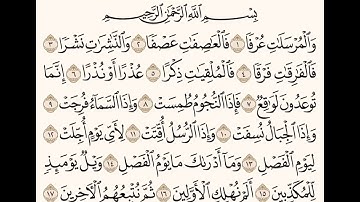 بِسْمِ ٱللَّهِ ٱلرَّحْمَٰنِ ٱلرَّحِيمِ
وَٱلْمُرْسَلَٰتِ عُرْفًا ١ فَٱلْعَٰصِفَٰتِ عَصْفًا ٢ وَٱلنَّٰشِرَٰتِ نَشْرًا ٣
فَٱلْفَٰرِقَٰتِ فَرْقًا ٤ فَٱلْمُلْقِيَٰتِ ذِكْرًا ٥ عُذْرًا أَوْ نُذْرًا ٦ إِنَّمَا
تُوعَدُونَ لَوَٰقِعٌ ٧ فَإِذَا ٱلنُّجُومُ طُمِسَتْ ٨ وَإِذَا ٱلسَّمَآءُ فُرِجَتْ ٩
وَإِذَا ٱلْجِبَالُ نُسِفَتْ ١٠ وَإِذَا ٱلرُّسُلُ أُقِّتَتْ ١١ لِأَىِّ يَوْمٍ أُجِّلَتْ ١٢
لِيَوْمِ ٱلْفَصْلِ ١٣ وَمَآ أَدْرَىٰكَ مَا يَوْمُ ٱلْفَصْلِ ١٤ وَيْلٌ يَوْمَئِذٍ
لِّلْمُكَذِّبِينَ ١٥ أَلَمْ نُهْلِكِ ٱلْأَوَّلِينَ ١٦ ثُمَّ نُتْبِعُهُمُ ٱلْءَاخِرِينَ ١٧